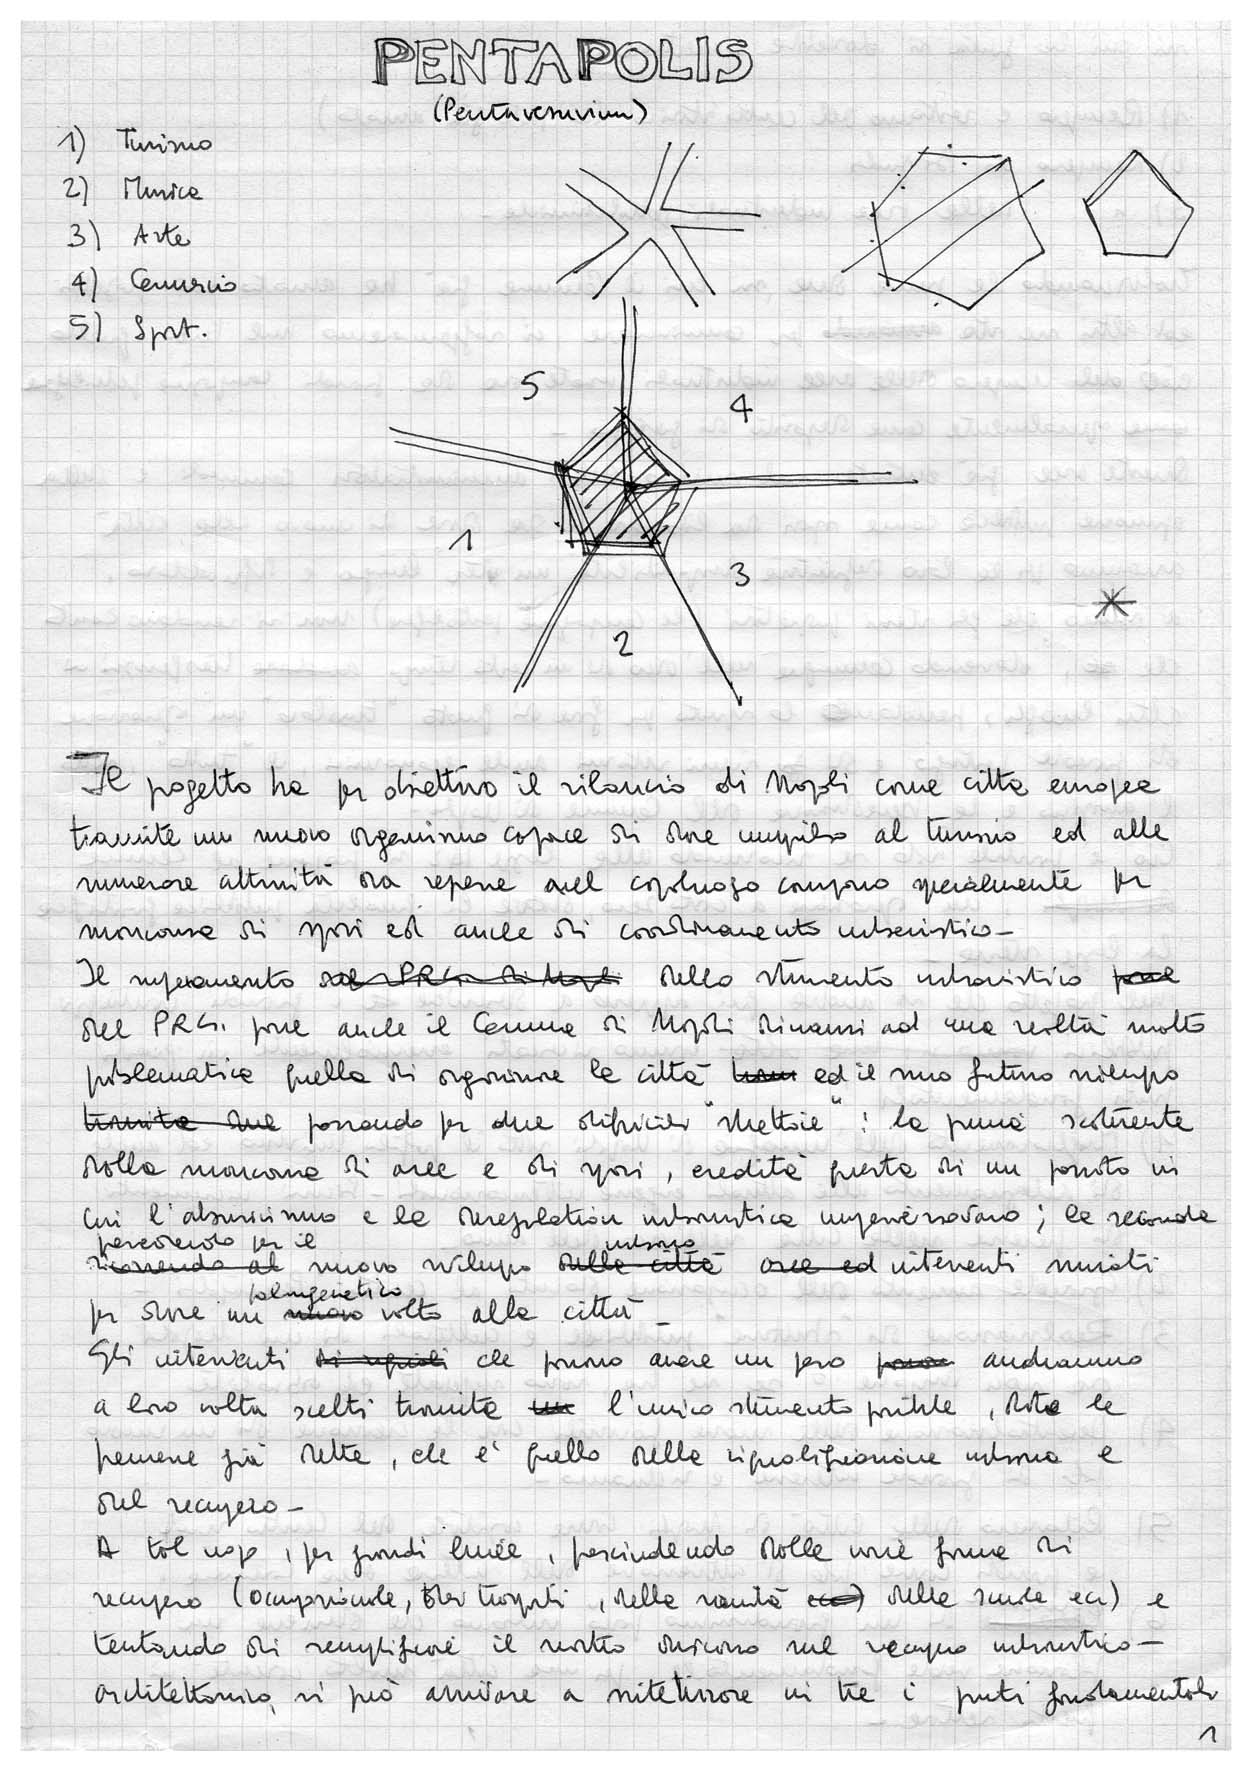 PENTAPOLIS
(Pentavesuvium)
1) Turismo
2) Musica
3) Arte
4) Commercio
5) Sport.
5
4
1
3
2
Il progetto ha per obiettivo il rilancio di Napoli come città europea
tramite un nuovo organismo capace di dare impulso al turismo ed alle
numerose attività ora represse nel capoluogo campano specialmente per
mancanza di spazi ed anche di coordinamento urbanistico_
Il superamento del PRG. di Napoli dello strumento urbanistico pone
del PRG. pone anche il Comune di Napoli dinanzi ad una realtà molto
problematica quella di organizzare la città ed il suo futuro sviluppo
tramite due passando per due difficili "strettoie": la prima scaturente
dalla mancanza di aree e di spazi, eredità questa di un passato in
cui l'abusivismo e la deregulation urbanistica imperversavano; la seconda
percorrendo per il urbano
ricorrendo al nuovo sviluppo della città aree ed interventi mirati
palingenetico
per dare un nuovo volto alla città_
Gli interventi che possono avere un peso andranno
a loro volta scelti tramite un l'unico strumento possibile, date le
premesse già dette, che è quello della riqualificazione urbana e
del recupero_
A tal uopo, per grandi linee, prescindendo dalle varie forme di
recupero (occupazionale, dei trasporti, della sanità ecc) delle scuole ecc) e
tentando di semplificare il nostro discorso sul recupero urbanistico-
architettonico, si può arrivare a sintetizzare in tre i punti fondamentali
1